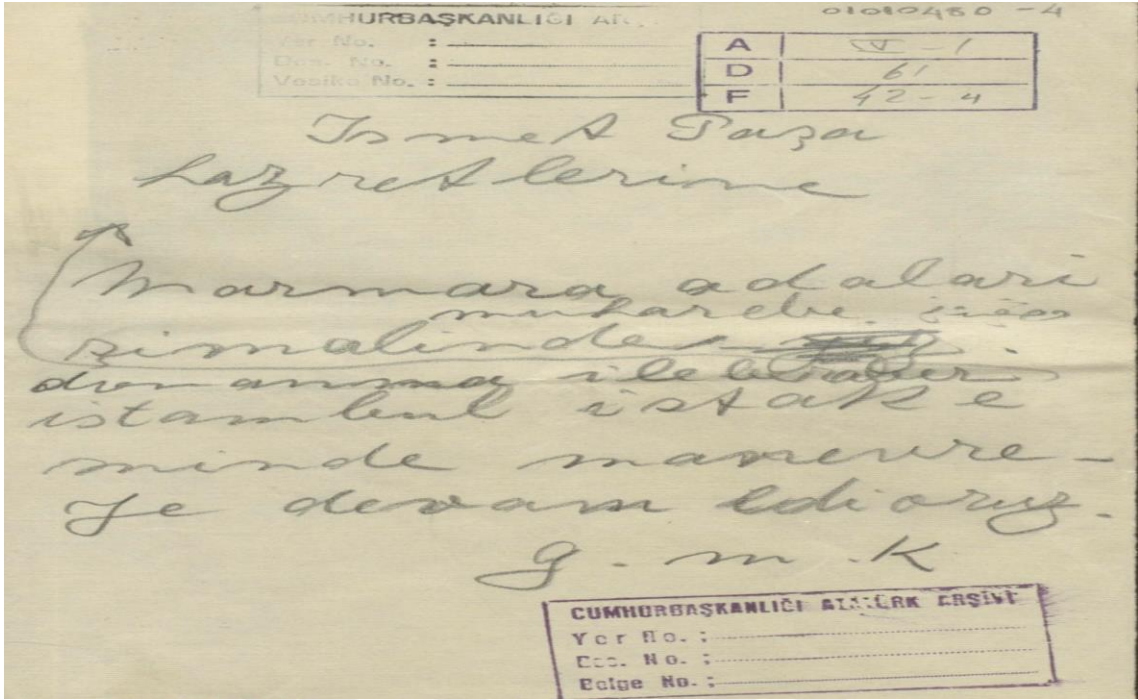 CUMHURBAŞKANLIĞI AR
01010480 -4
Yer No. :
Dos. No. :
Vesika No. :
A V-1
D 61
F 42-4
Ismet Paşa
hazretlerine
Marmara adalari
muharebe
şimalinde
donanması ile beraber
istambul istake
minde manevre-
ye devam edioruz.
g.m.K
CUMHURBAŞKANLIĞI ATATÜRK ARŞİVİ
Yer No. :
Dos. No. :
Belge No. :